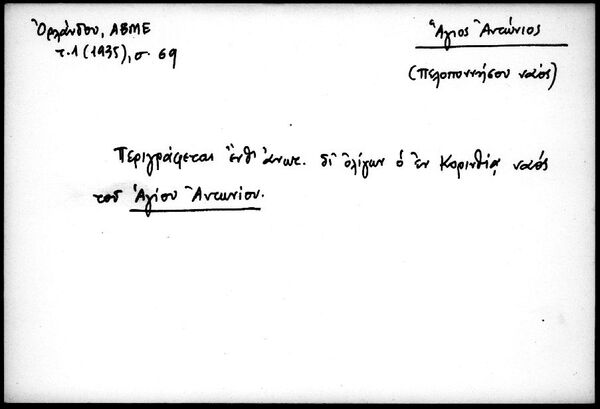 Ὀρλάνδου, ΑΒΜΕ
τ.1 (1935), σ. 69
Ἅγιος Ἀντώνιος
(Πελοποννήσου ναός)
Περιγράφεται ἔνθ' ἀνωτ. δι' ὀλίγων ὁ ἐν Κορινθίᾳ ναός
τοῦ Ἁγίου Ἀντωνίου.